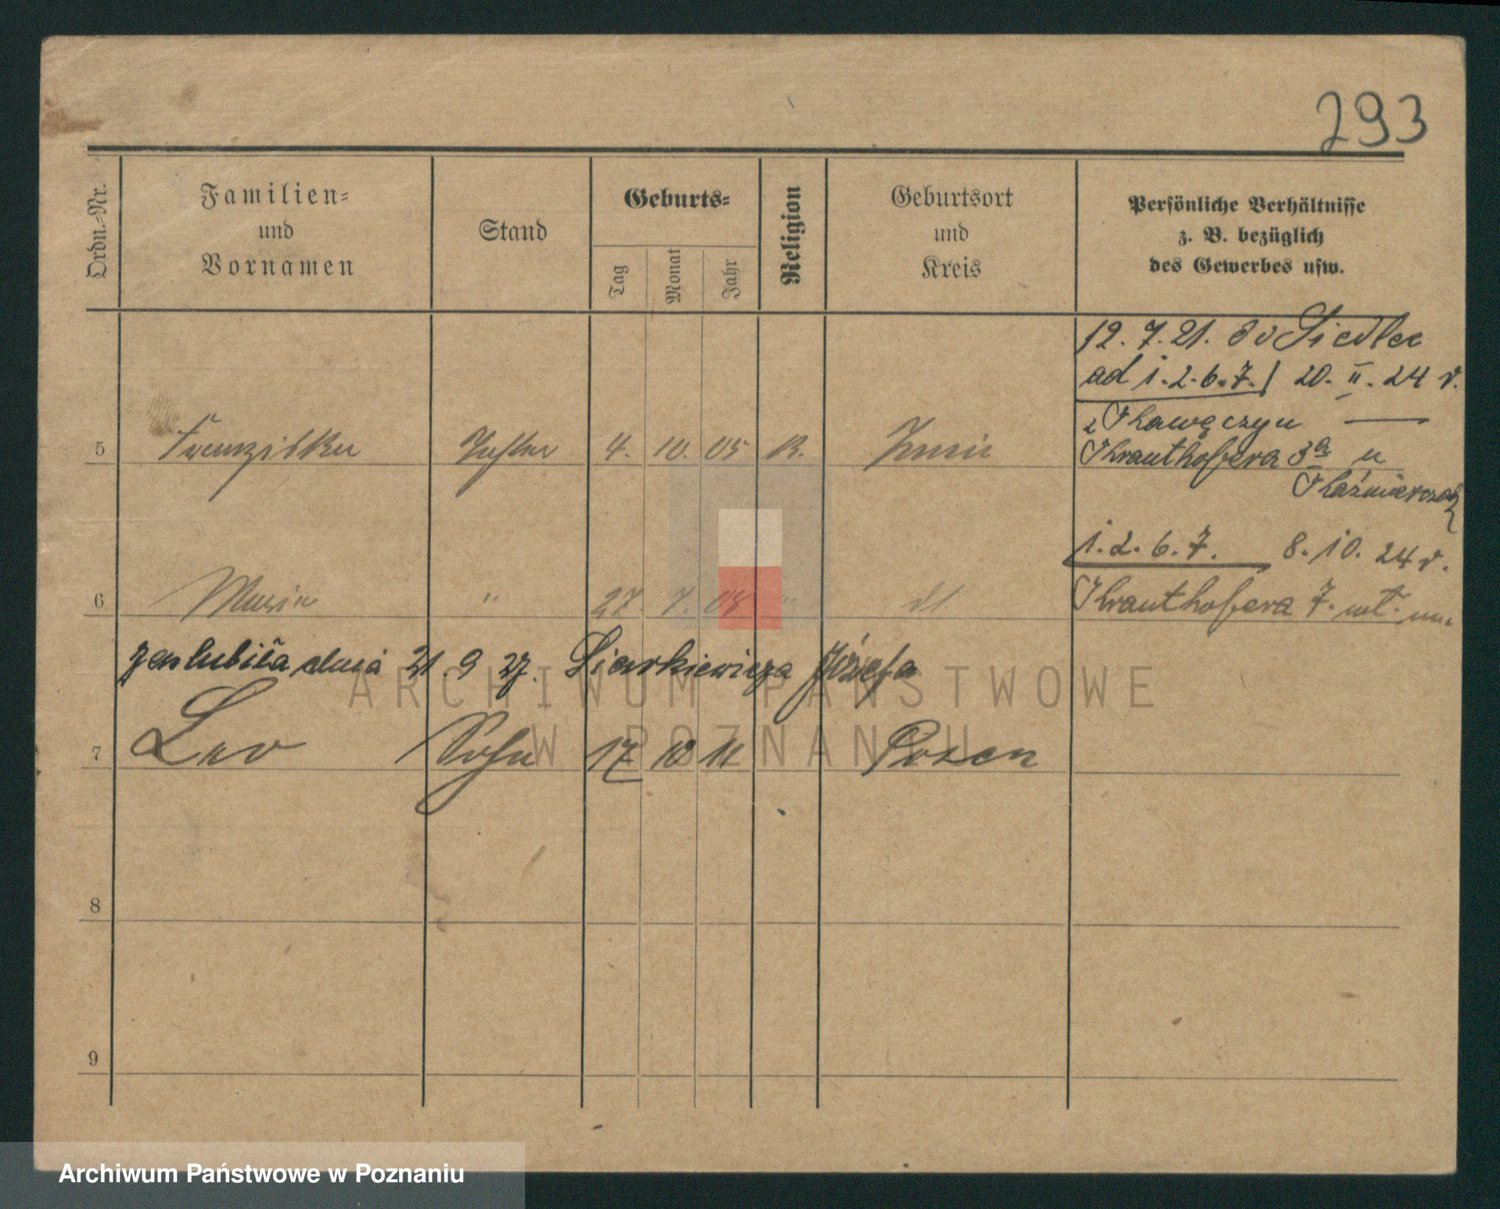 293
Ordn.-Nr.
Familien-
und
Vornamen
Stand
Geburts-
Tag
Monat
Jahr
Religion
Geburtsort
und
Kreis
Persönliche Verhältnisse
z. B. bezüglich
des Gewerbes usw.
12. 7. 21. Siedlec
ad 1. 2. 6. 7. / 20. II. 24 r.
5 Franziska Tochter 4. 10. 05 K.
Krauthofera 3a u
Kaźmierczak
1. 2. 6. 7. 8. 10. 24 r.
6 Maria " 27. 7. 08 "
Krauthofera 7.
zaślubiła dnia 21. 9 27. Siarkiewicza Józefa
7 Leo Sohn 17 10 11 Posen
8
9
ARCHIWUM PAŃSTWOWE
W POZNANIU
Archiwum Państwowe w Poznaniu